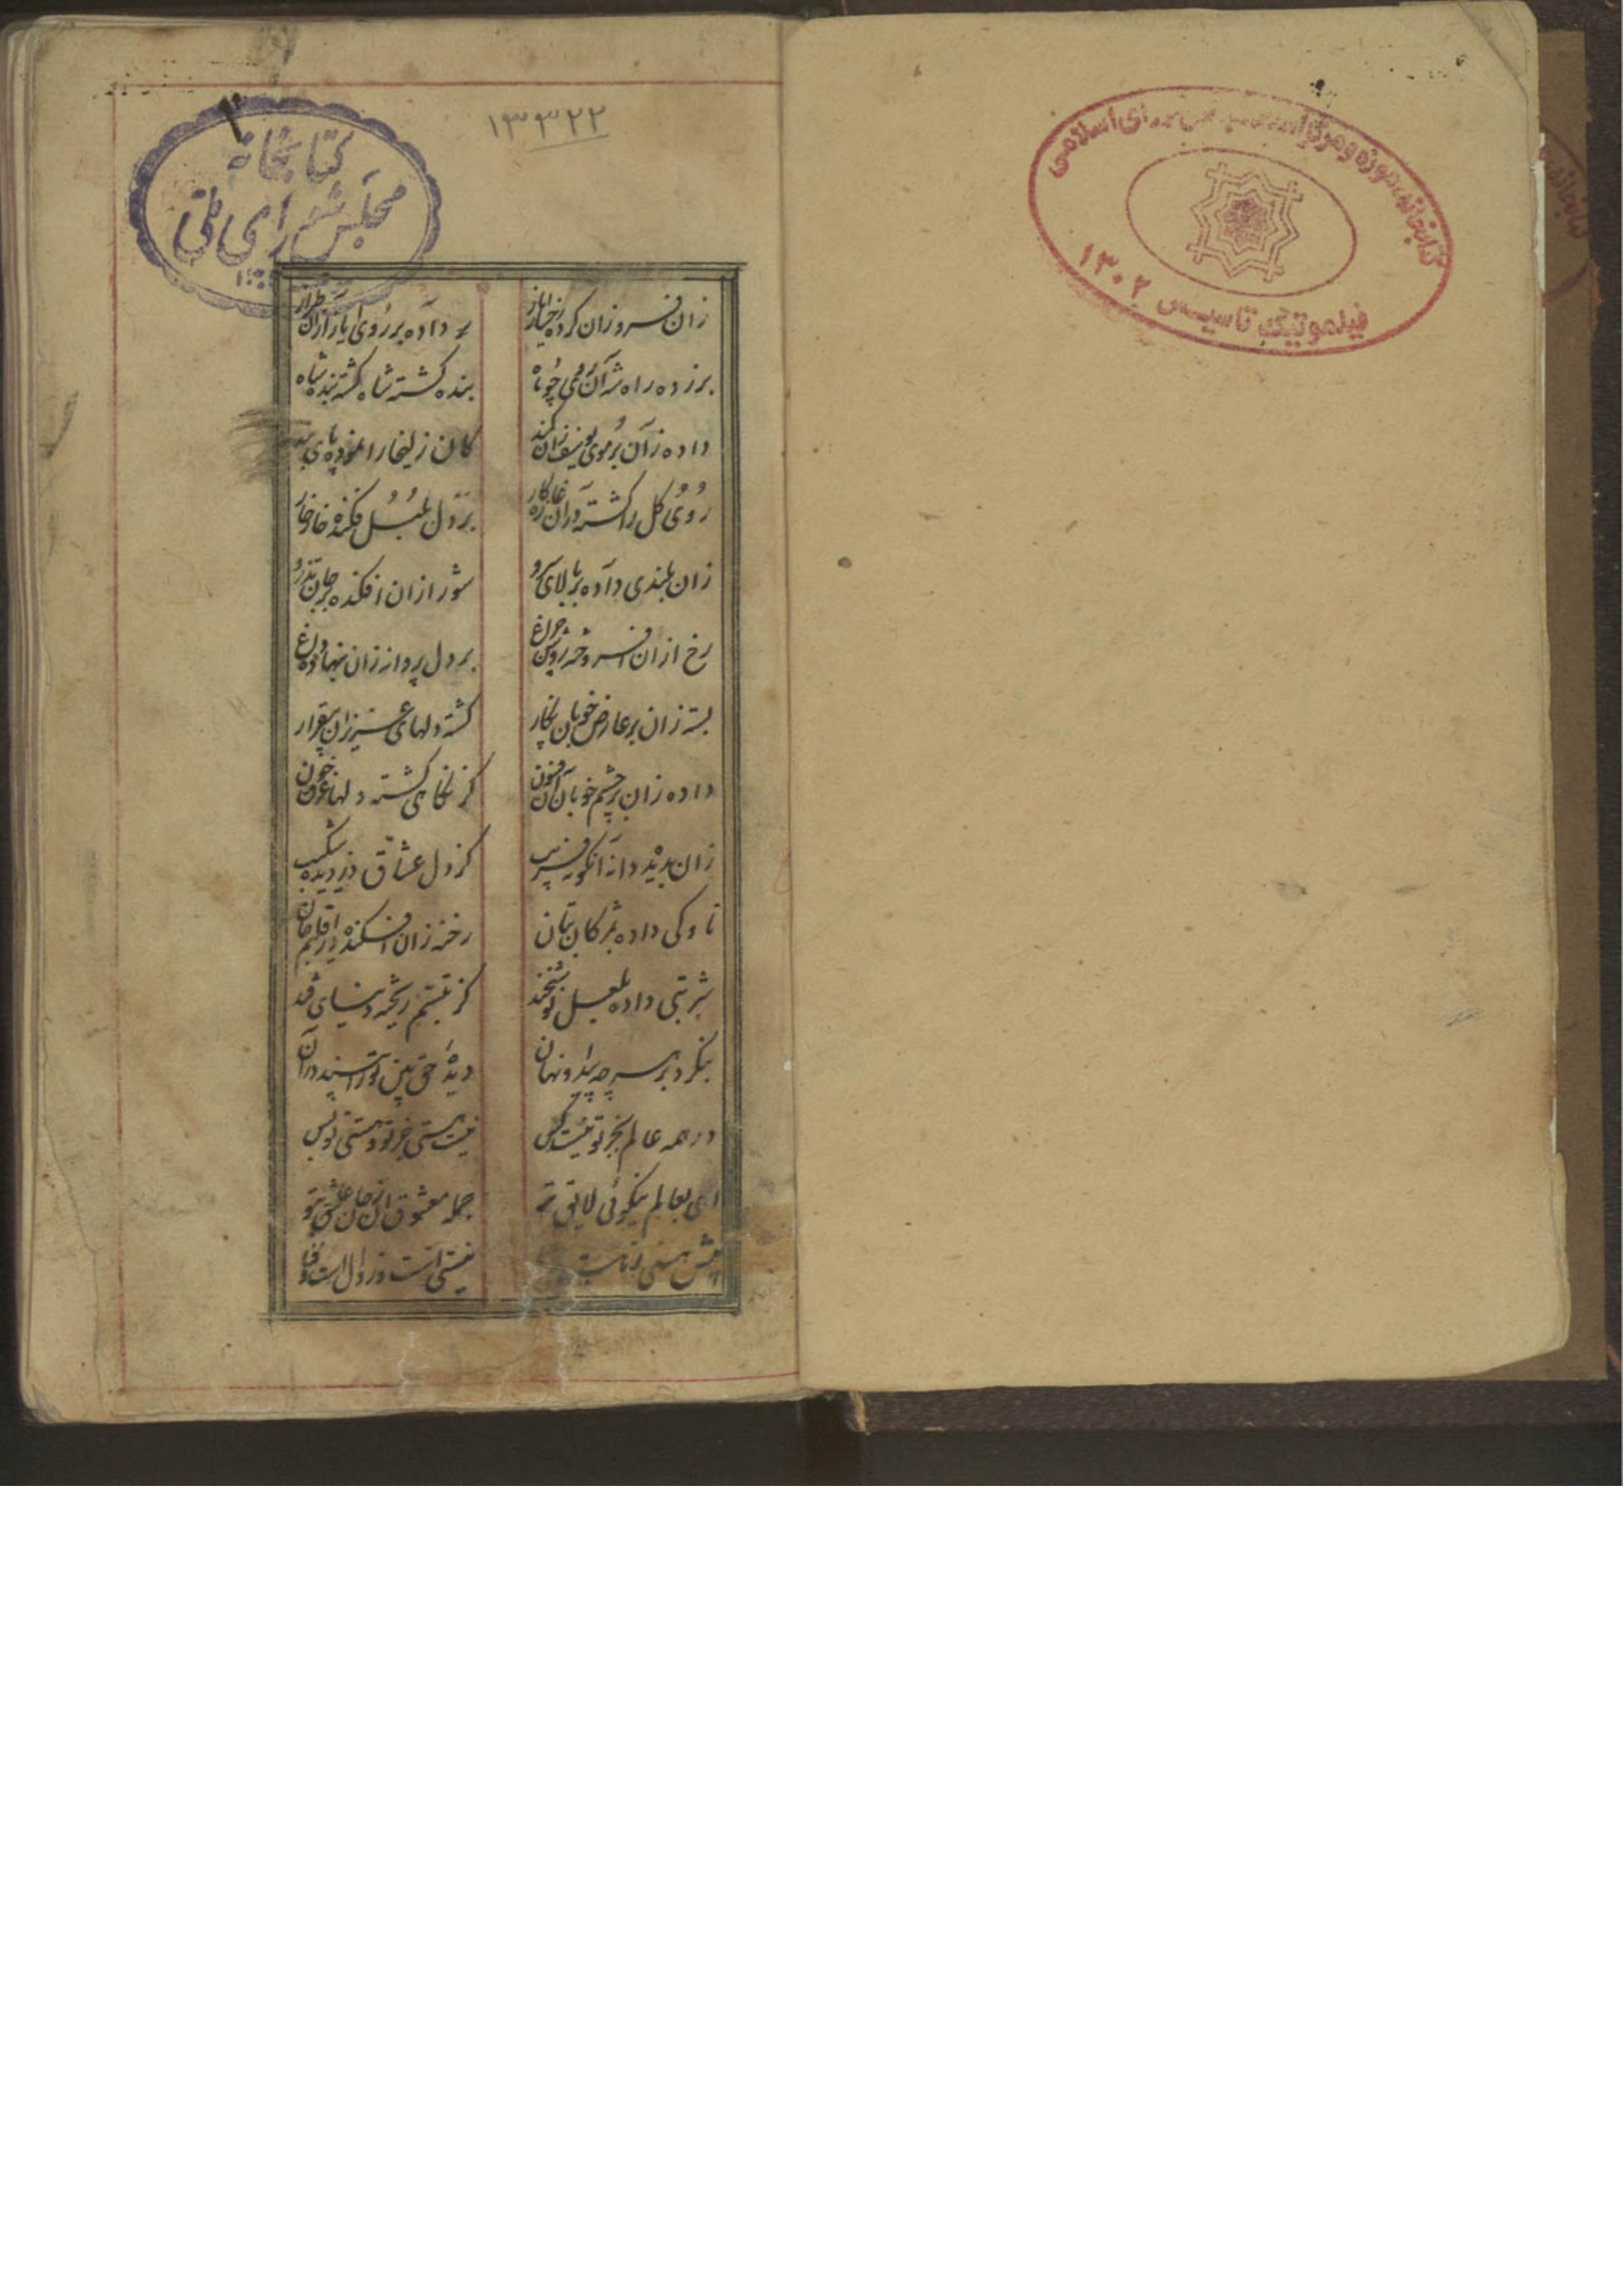 کتابخانه، موزه و مرکز اسناد مجلس شورای اسلامی
فیلموتیک تاسیس ۱۳۰۲
۱۳۳۲۲
کتابخانه
مجلس شورای ملی
زان فروزان کرده رخسار ایاز
داده بر روی ایاز آن طراز
بر زده راه شه آن روی چو ماه
بنده گشته شاه گشته بنده شاه
داده زان بر موی یوسف زان کمند
کان زلیخا را نموده پای بند
روی گل را گشته زان غازه کار
بر دل بلبل فکنده خار خار
زان بلندی داده بر بالای سرو
شور ازان افکنده بر جان تذرو
رخ ازان افروخته روشن چراغ
بر دل پروانه زان بنهاده داغ
بسته زان بر عارض خوبان نگار
گشته دلهای عزیزان بیقرار
داده زان بر چشم خوبان آن فسون
کز نگاهی گشته دلها غرق خون
زان بدید دانه انگور فریب
کز دل عشاق دزدیده شکیب
ناوکی داده بمژگان بتان
رخنه زان افکنده در اقلیم جان
شربتی داده بلعل نوشخند
کز تبسم ریخته دنیای قند
بنگرد بر هر چه پیدا و نهان
دیده حق بین تو را بیند در آن
در همه عالم بجز تو نیست کس
نیست هستی جز تو و هستی تو بس
ای بعالم نیکوئی لایق بتو
جمله معشوقان ز جان عاشق بتو
نقش هستی
نیستی است و زوال است و فنا